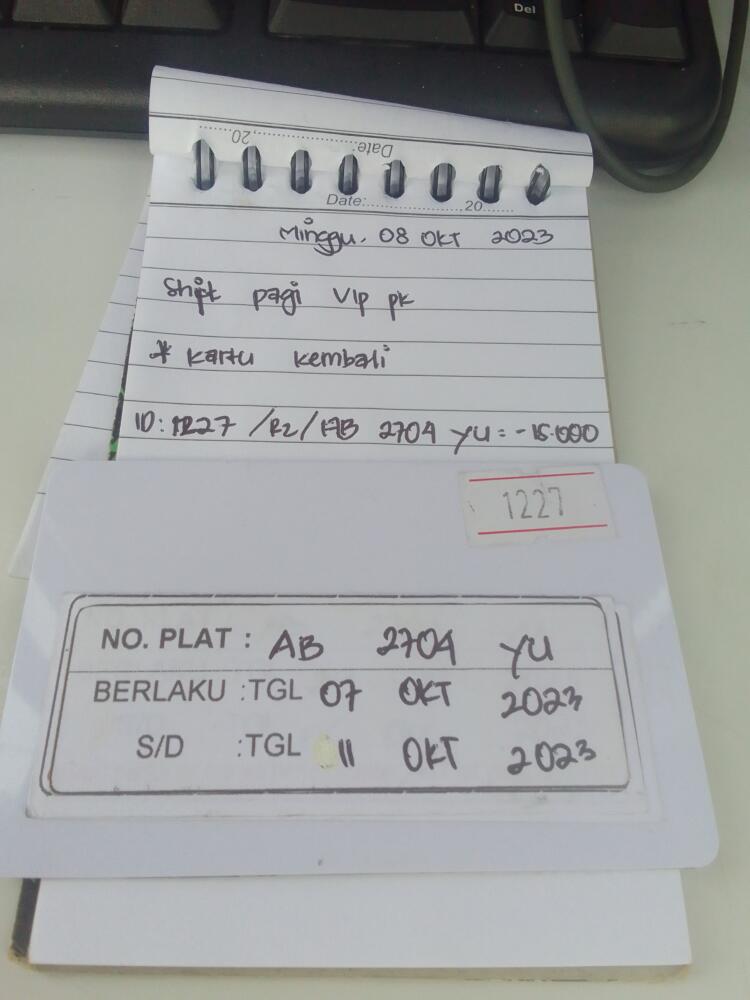 Del
Date:....................,20........
Date:....................,20........
Minggu, 08 OKT 2023
Shift pagi Vip pk
* Kartu kembali
ID: 1227 /R2/ AB 2704 YU = -15.000
1227
NO. PLAT : AB 2704 YU
BERLAKU :TGL 07 OKT 2023
S/D :TGL 11 OKT 2023